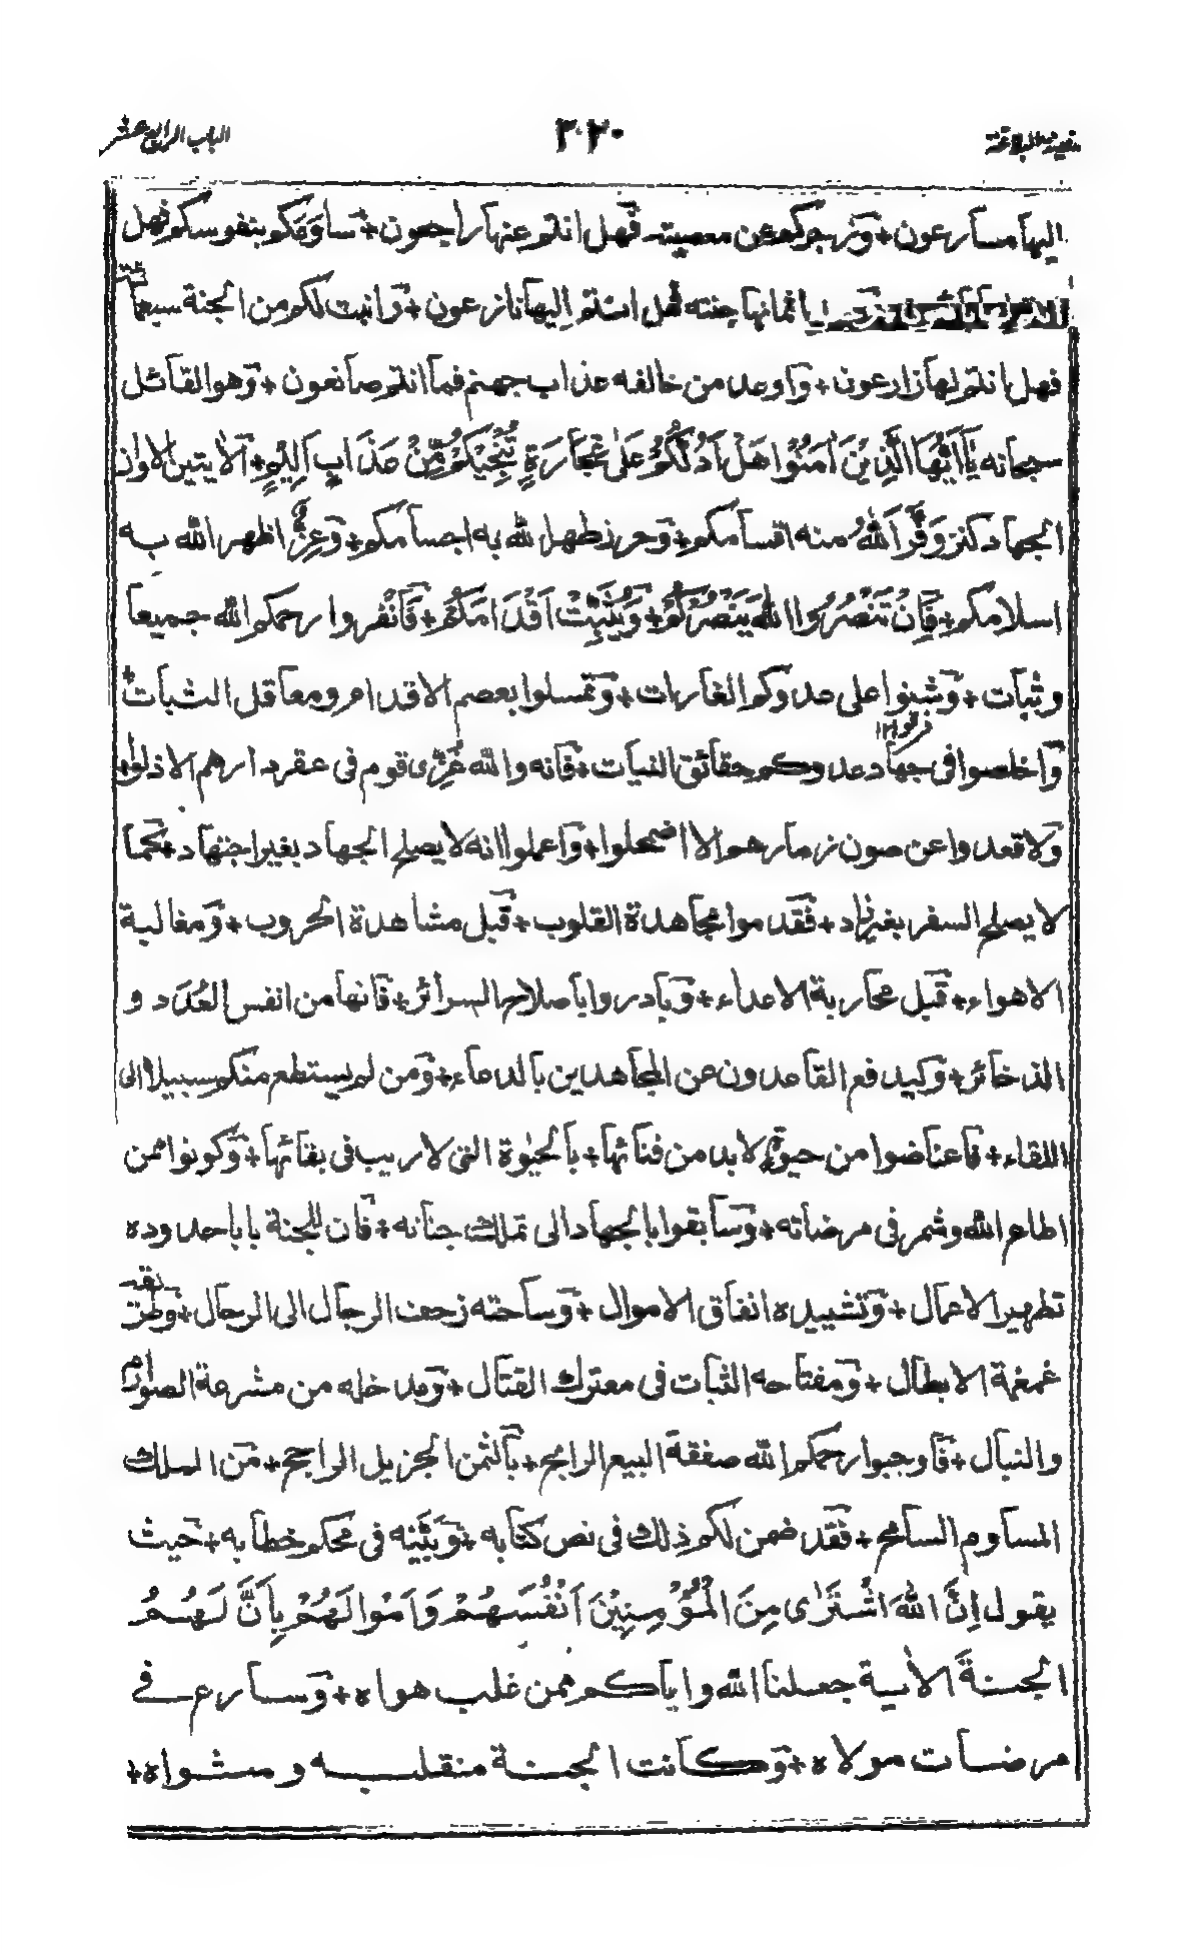 نفحة البلاغة ٣٢٠ الباب الرابع عشر
اليها مسارعون + وزجركم عن معصيته فهل انتم عنها راجعون + ساومكم بنفوسكم فهل
باثمانها جنته فهل انتم اليها نازعون + وانبت لكم من الجنة سيما
فهل انتم لها زارعون + واوعد من خالفه عذاب جهنم فما انتم صانعون + وهو القائل
سبحانه يٰۤاَيُّهَا الَّذِيْنَ اٰمَنُوْا هَلْ اَدُلُّكُمْ عَلٰى تِجَارَةٍ تُنْجِيْكُمْ مِّنْ عَذَابٍ اَلِيْمٍ + الآيتين الا وان
الجهاد كنز وَفَّرَ اللّٰهُ منه اقسامكم + وحرز طهر الله به اجسامكم + وعِزٌّ اظهر الله به
اسلامكم + فَاِنْ تَنْصُرُوا اللّٰهَ يَنْصُرْكُمْ + وَيُثَبِّتْ اَقْدَامَكُمْ + فَانْفروا رحمكم الله جميعا
وثبات + وشنوا على عدوكم الغارات + وتمسلوا بعصم الاقدام ومعاقل الثبات +
واخلصوا فى جهاد عدوكم حقائق النيات + فانه والله ما غُزِى قوم فى عقر دارهم الا ذلوا +
ولا قعدوا عن صون ذمارهم الا اضمحلوا + واعلموا انه لا يصلح الجهاد بغير اجتهاد + كما
لا يصلح السفر بغير زاد + فقدموا مجاهدة القلوب + قبل مشاهدة الحروب + ومغالبة
الاهواء + قبل محاربة الاعداء + وبادروا باصلاح السرائر + فانها من انفس العُدَد و
الذخائر + وكيدفع القاعدون عن المجاهدين بالدعاء + ومن لم يستطع منكم سبيلا الى
اللقاء + فاعتاضوا من حيوة لا بد من فنائها + بالحيٰوة التى لا ريب فى بقائها + وكونوا ممن
اطاع الله وشمر فى مرضاته + وسابقوا بالجهاد الى تملك جنانه + فان للجنة بابا حدوده
تطهير الاعمال + وتشييده انفاق الاموال + وساحته زحف الرجال الى الرجال + وطريقه
غمغمة الابطال + ومفتاحه الثبات فى معترك القتال + ومدخله من مشرعة الصوارم
والنبال + فاوجبوا رحمكم الله صفقة البيع الرابح + بالثمن الجزيل الراجح + من الملك
المساوم السامح + فقد ضمن لكم ذلك فى نص كتابه + وبَيَّنه فى محكم خطابه + حيث
يقول اِنَّ اللّٰهَ اشْتَرٰى مِنَ الْمُؤْمِنِيْنَ اَنْفُسَهُمْ وَاَمْوَالَهُمْ بِاَنَّ لَهُمُ
الْجَنَّةَ الاٰية جعلنا الله واياكم ممن غلب هواه + وسارع فى
مرضات مولاه + وكانت الجنة منقلبه ومثواه +